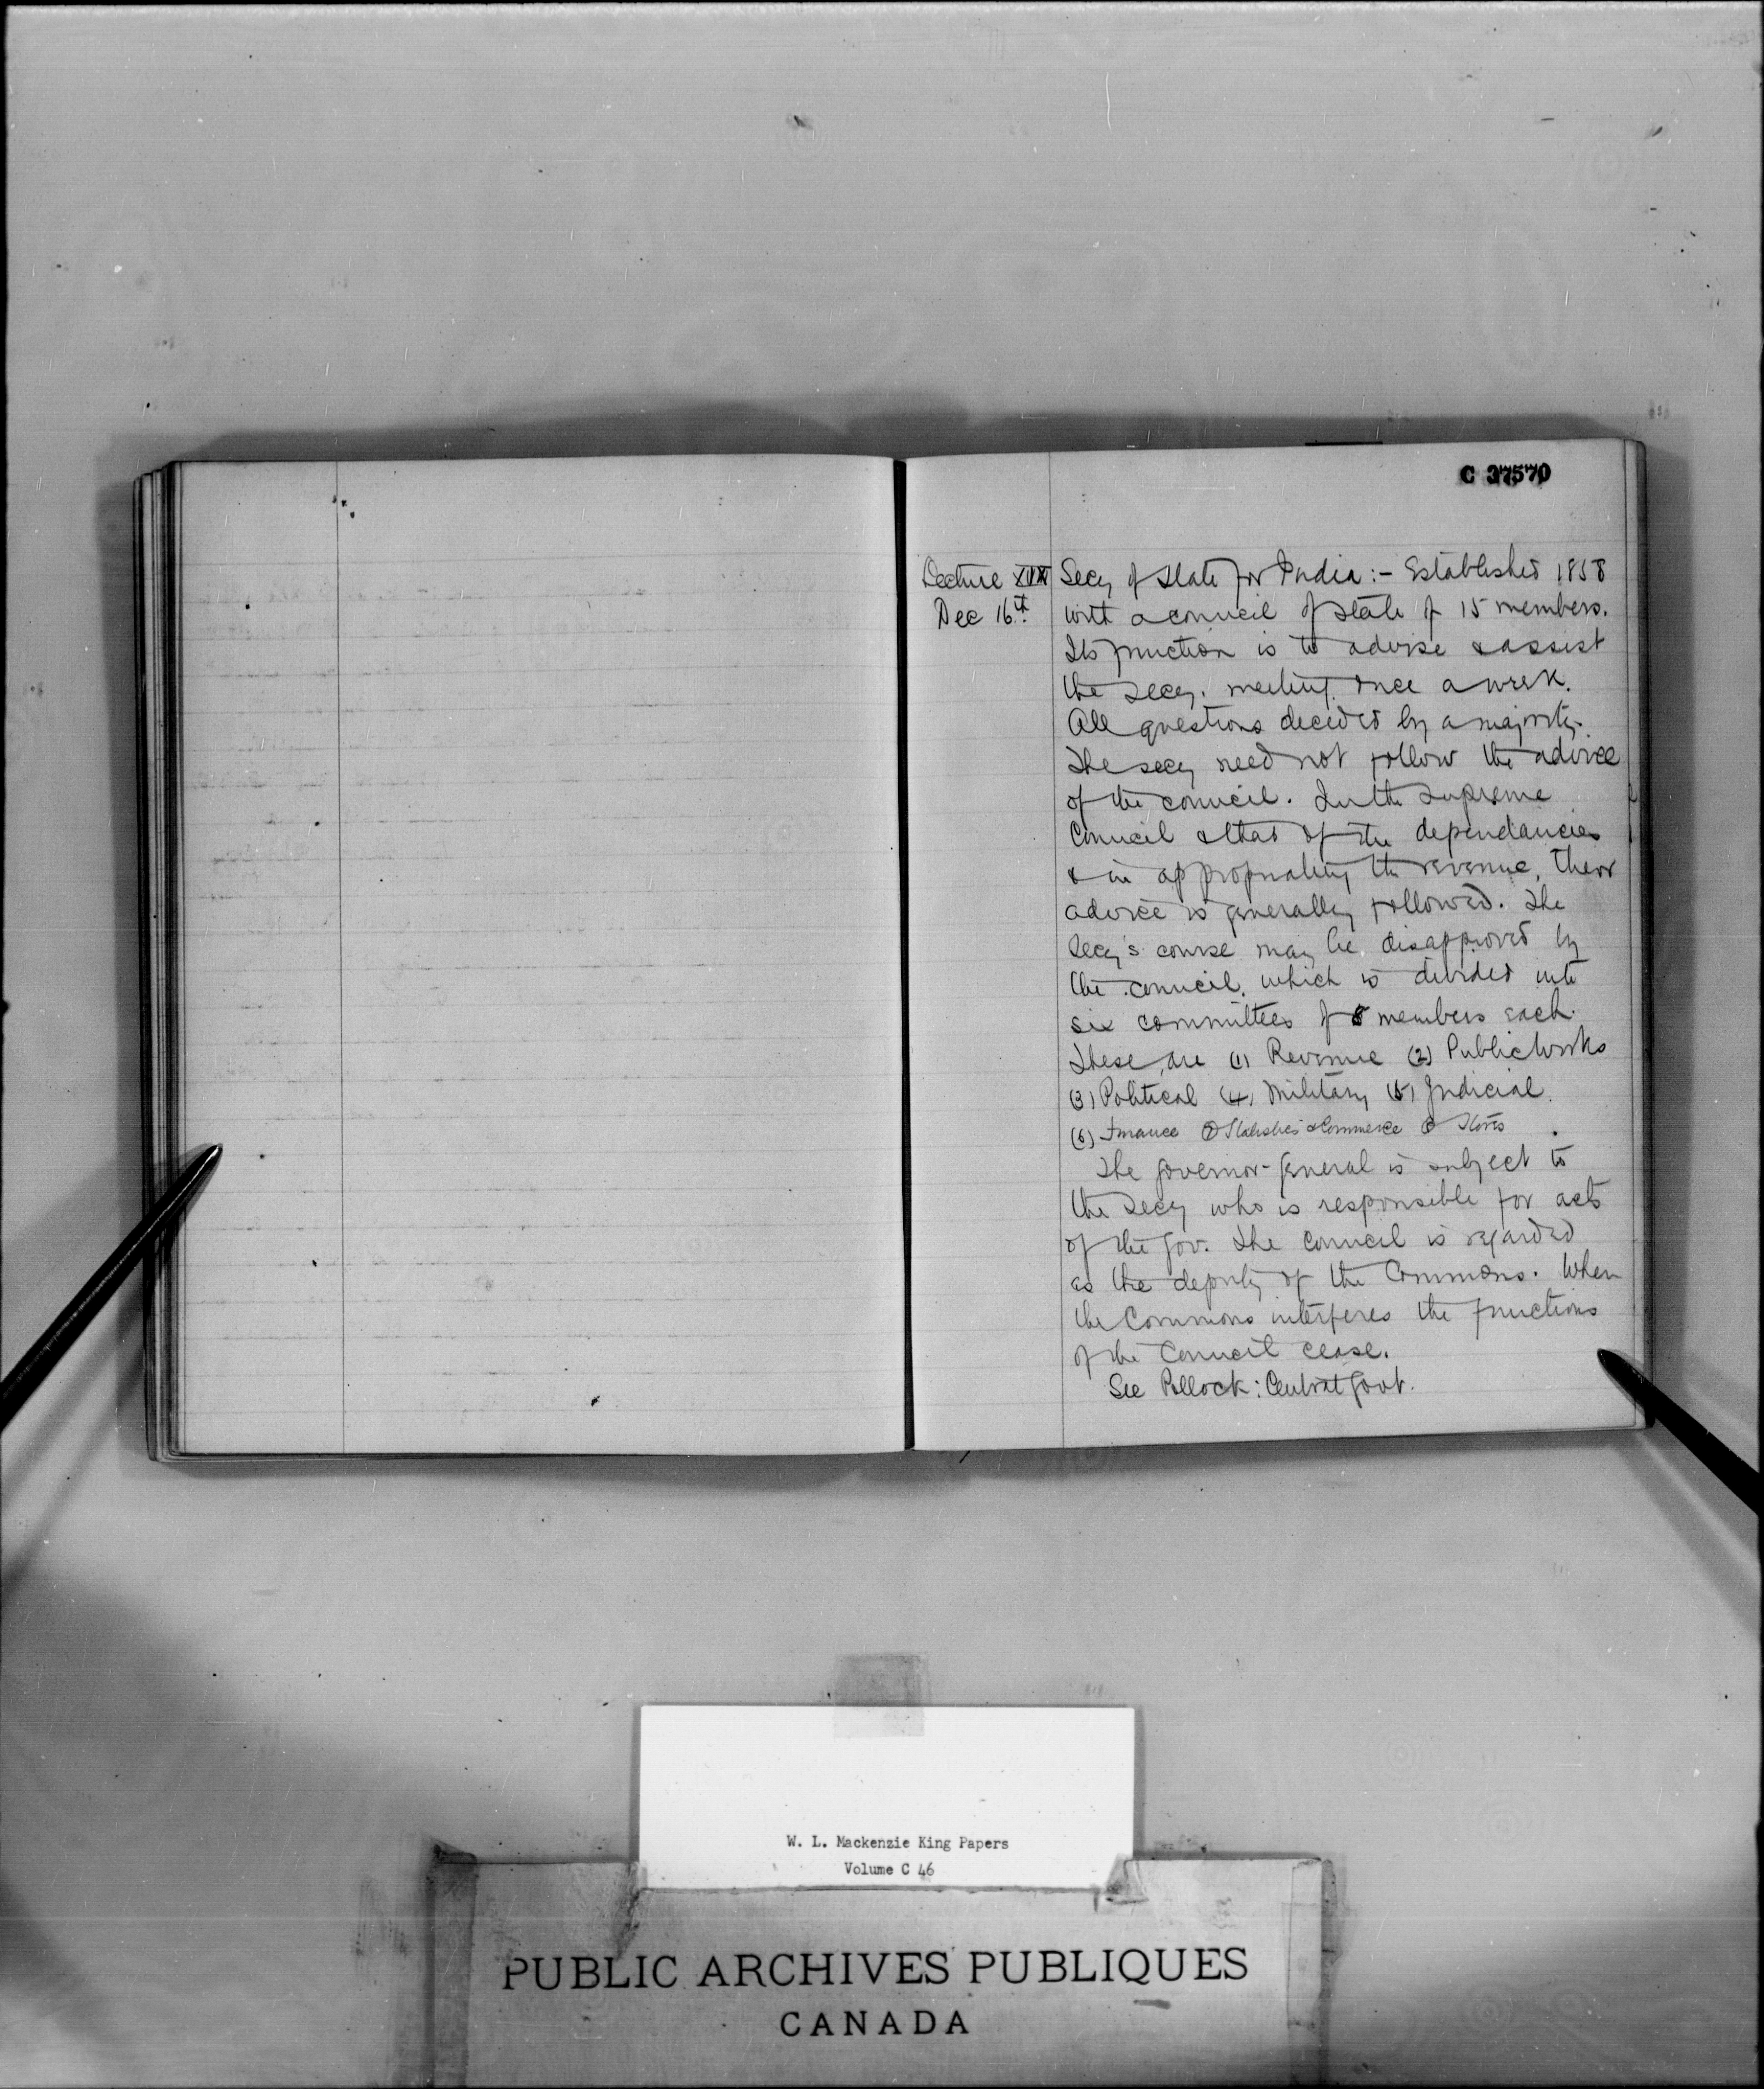 C 37570
Lecture XVIII
Dec 16th
Secy of State for India:- Established 1858
with a council of state of 15 members.
Its function is to advise & assist
the secy. meeting once a week.
All questions decided by a majority.
The secy need not follow the advice
of the council. In the supreme
Council & that of the dependancies
& in appropriating the revenue, their
advice is generally followed. The
secy's course may be disapproved by
the council, which is divided into
six committees of 5 members each.
These are (1) Revenue (2) Public Works
(3) Political (4) Military (5) Judicial.
(6) Finance Statistics & Commerce Stores
The governor-general is subject to
the secy who is responsible for acts
of the gov. The council is regarded
as the deputy of the Commons. When
the Commons interferes the functions
of the Council cease.
See Pollock: Central Govt.
W. L. Mackenzie King Papers
Volume C 46
PUBLIC ARCHIVES PUBLIQUES
CANADA